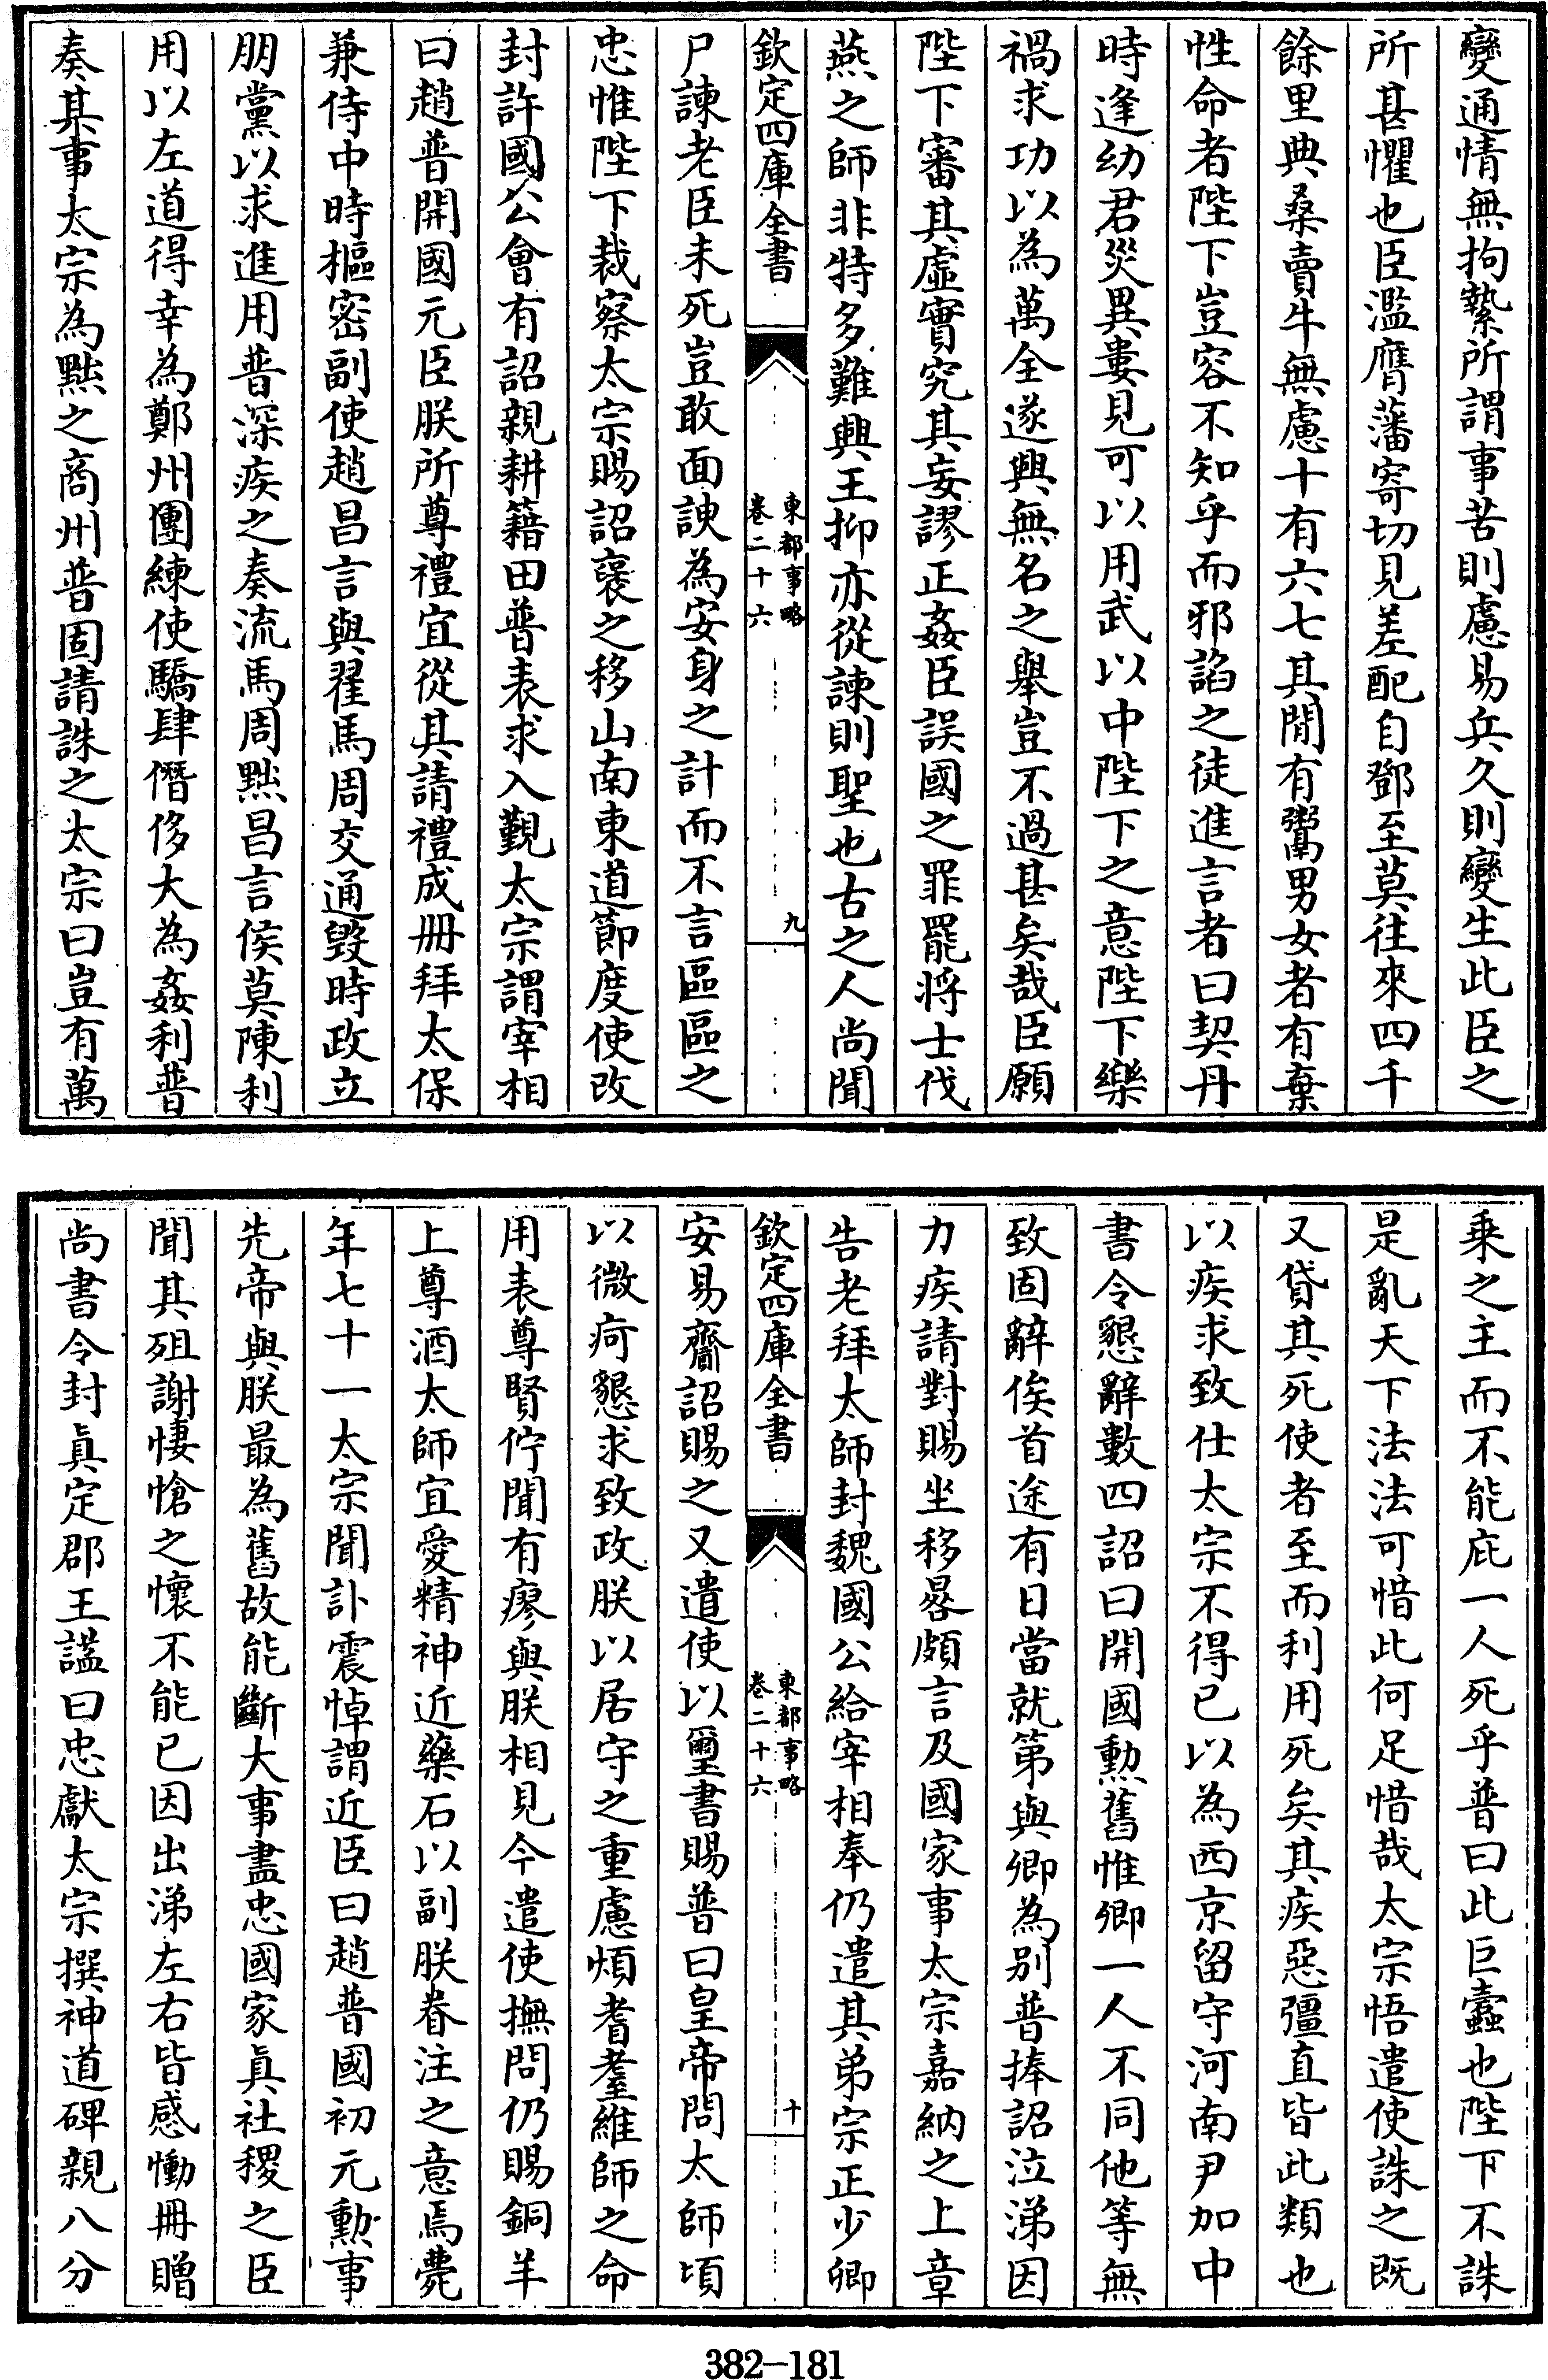 變通情無拘縶所謂事苦則慮易兵久則變生此臣之
所甚懼也臣濫膺藩寄切見差配自鄧至莫往來四千
餘里典桑賣牛無慮十有六七其閒有鬻男女者有棄
性命者陛下豈容不知乎而邪諂之徒進言者曰契丹
時逢幼君災異婁見可以用武以中陛下之意陛下樂
禍求功以為萬全遂興無名之舉豈不過甚矣哉臣願
陛下審其虛實究其妄謬正姦臣誤國之罪罷將士伐
燕之師非特多難興王抑亦從諫則聖也古之人尚聞
欽定四庫全書
東都事略
卷二十六
九
尸諫老臣未死豈敢面諛為安身之計而不言區區之
忠惟陛下裁察太宗賜詔襃之移山南東道節度使改
封許國公會有詔親耕籍田普表求入覲太宗謂宰相
曰趙普開國元臣朕所尊禮宜從其請禮成冊拜太保
兼侍中時樞密副使趙昌言與翟馬周交通毀時政立
朋黨以求進用普深疾之奏流馬周黜昌言侯莫陳利
用以左道得幸為鄭州團練使驕肆僭侈大為姦利普
奏其事太宗為黜之商州普固請誅之太宗曰豈有萬
乘之主而不能庇一人死乎普曰此巨蠹也陛下不誅
是亂天下法法可惜此何足惜哉太宗悟遣使誅之既
又貸其死使者至而利用死矣其疾惡彊直皆此類也
以疾求致仕太宗不得已以為西京留守河南尹加中
書令懇辭數四詔曰開國勳舊惟卿一人不同他等無
致固辭俟首途有日當就第與卿為别普捧詔泣涕因
力疾請對賜坐移晷頗言及國家事太宗嘉納之上章
告老拜太師封魏國公給宰相奉仍遣其弟宗正少卿
欽定四庫全書
東都事略
卷二十六
十
安易齎詔賜之又遣使以璽書賜普曰皇帝問太師頃
以微疴懇求致政朕以居守之重慮煩耆耋維師之命
用表尊賢佇聞有瘳與朕相見今遣使撫問仍賜銅羊
上尊酒太師宜愛精神近藥石以副朕眷注之意焉薨
年七十一太宗聞訃震悼謂近臣曰趙普國初元勳事
先帝與朕最為舊故能斷大事盡忠國家真社稷之臣
聞其殂謝悽愴之懷不能已因出涕左右皆感慟冊贈
尚書令封真定郡王諡曰忠獻太宗撰神道碑親八分
382-181